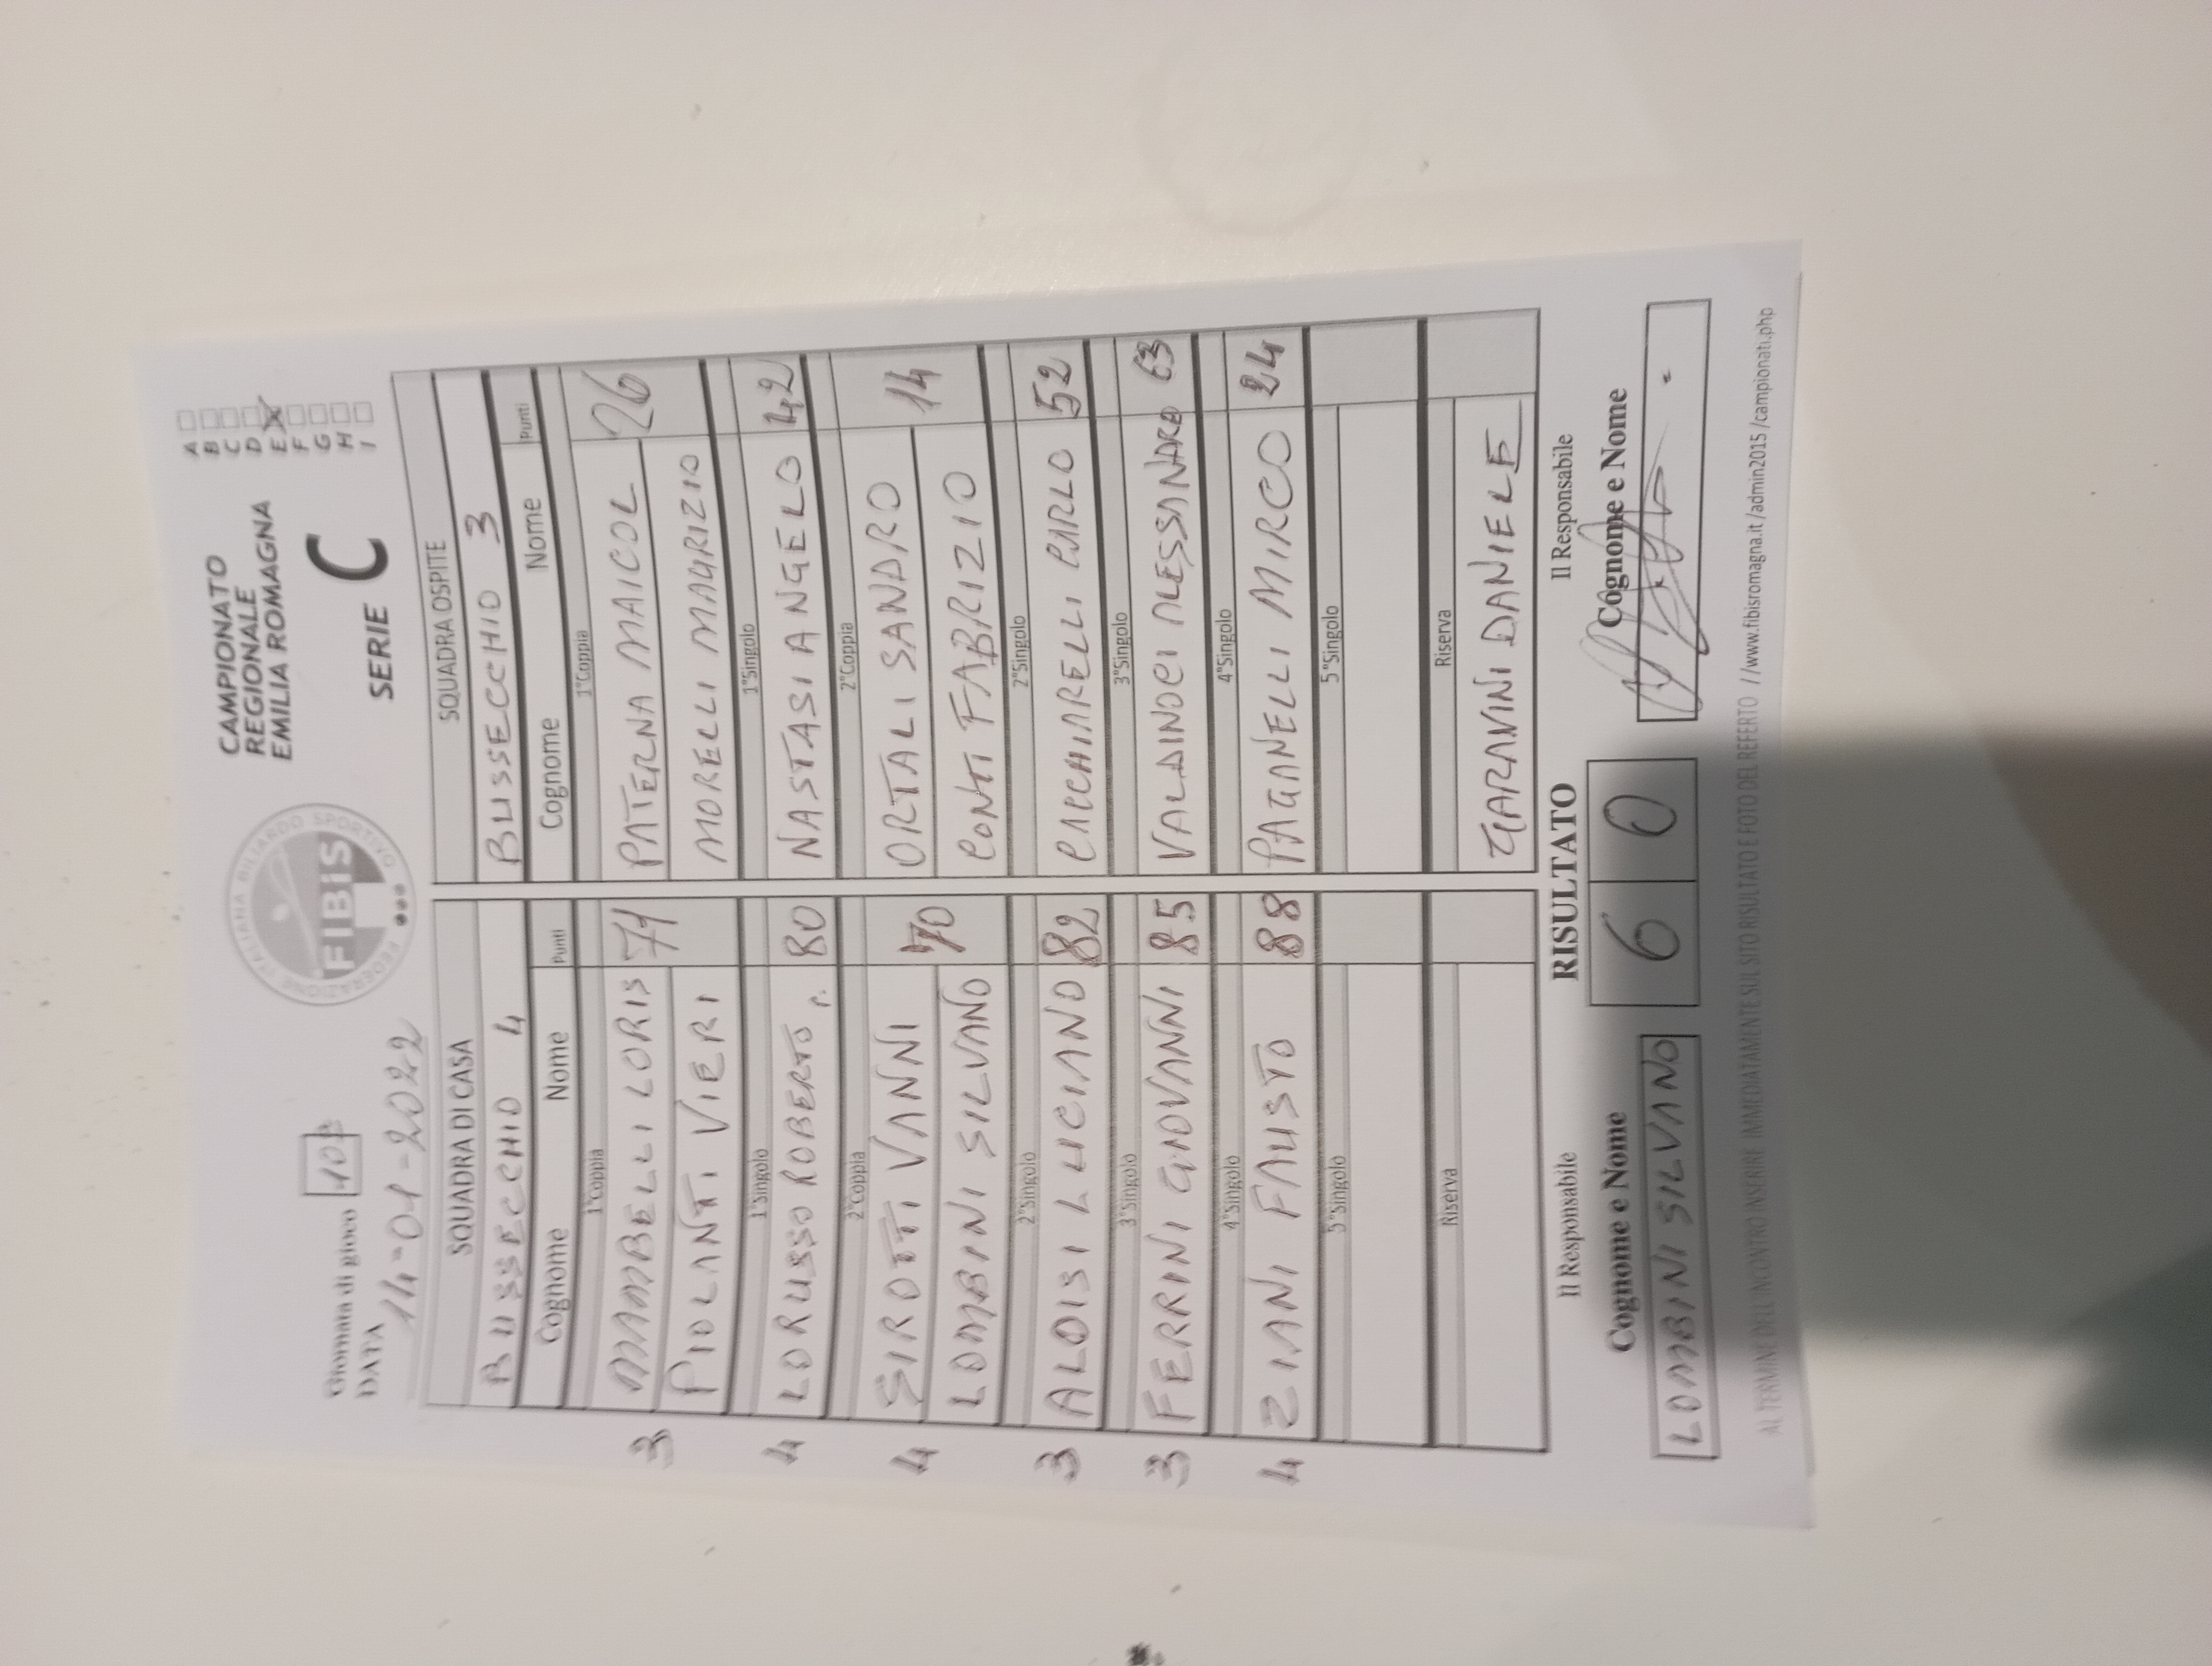 Giornata di gioco 10
DATA 14-01-2022
FEDERAZIONE ITALIANA BILIARDO SPORTIVO
FIBiS
CAMPIONATO
REGIONALE
EMILIA ROMAGNA
SERIE C
A
B
C
D
E X
F
G
H
I
SQUADRA DI CASA SQUADRA OSPITE
BUSSECCHIO 4 BUSSECCHIO 3
Cognome Nome Punti Cognome Nome Punti
1°Coppia 1°Coppia
3 MAMBELLI LORIS 71 PATERNA MAICOL 26
PIOLANTI VIERI MORELLI MAURIZIO
1°Singolo 1°Singolo
4 LORUSSO ROBERTO 80 NASTASI ANGELO 42
2°Coppia 2°Coppia
4 SIROTTI VANNI 70 ORTALI SANDRO 14
LOMBINI SILVANO CONTI FABRIZIO
2°Singolo 2°Singolo
3 ALOISI LUCIANO 82 CACCHIARELLI CARLO 52
3°Singolo 3°Singolo
3 FERRINI GIOVANNI 85 VALDINOCI ALESSANDRO 63
4°Singolo 4°Singolo
4 ZIANI FAUSTO 88 PAGANELLI MIRCO 24
5°Singolo 5°Singolo
Riserva Riserva
GARAVINI DANIELE
Il Responsabile RISULTATO Il Responsabile
Cognome e Nome 6 0 Cognome e Nome
LOMBINI SILVANO
AL TERMINE DELL'INCONTRO INSERIRE IMMEDIATAMENTE SUL SITO RISULTATO E FOTO DEL REFERTO //www.fibisromagna.it/admin2015/campionati.php